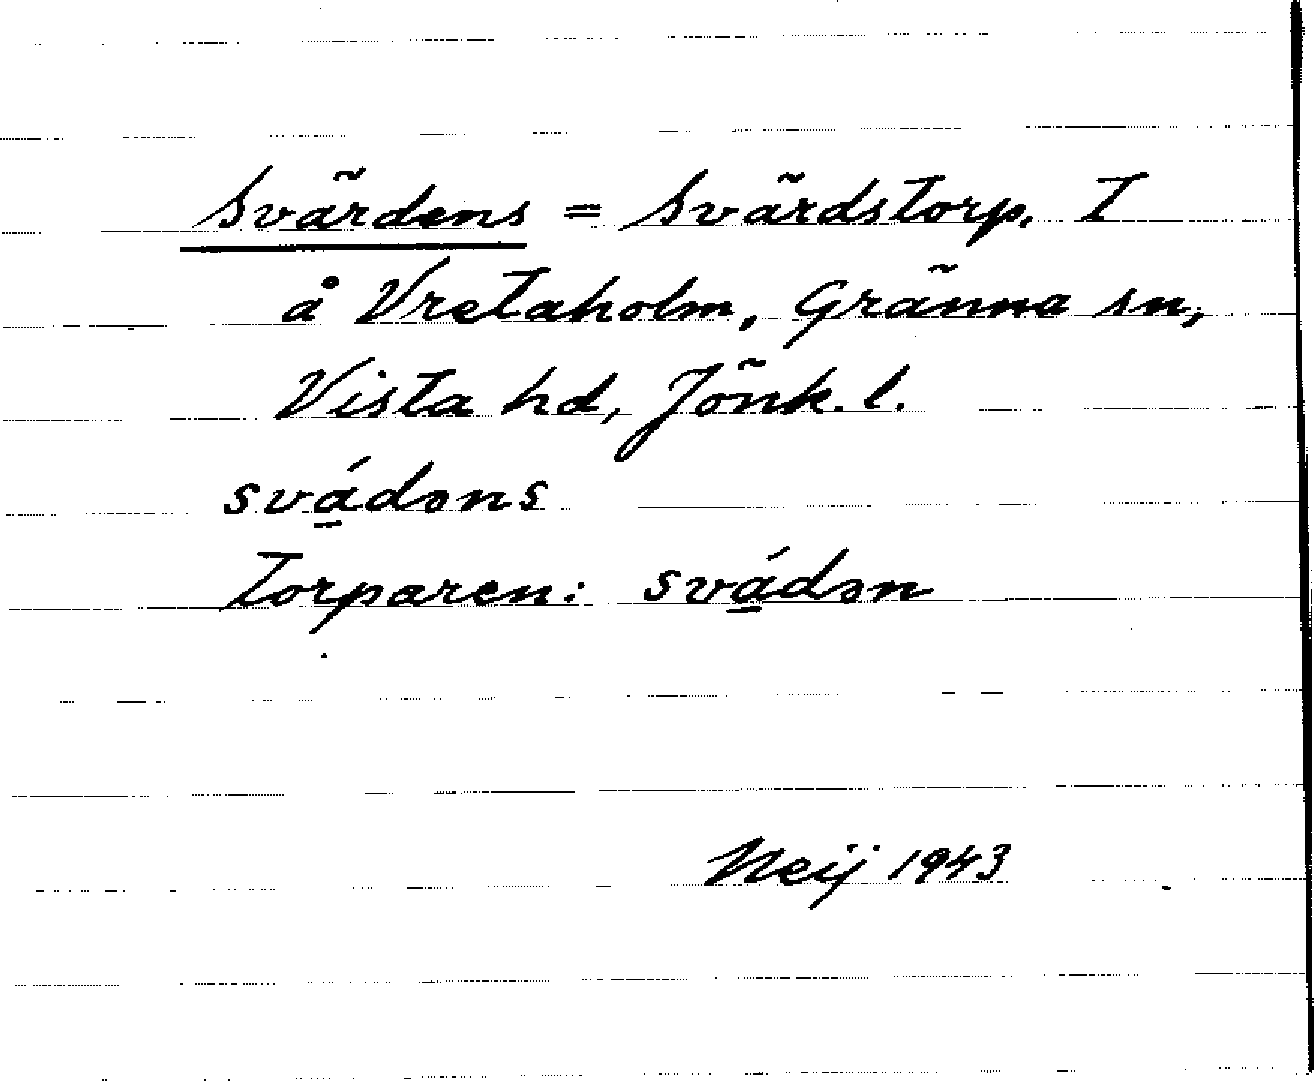 Svärdens = Svärdstorp. T
å Vretaholm, Gränna sn,
Vista hd, Jönk. l.
svá̱dɘns
Torparen: svá̱dɘn
Neij 1943